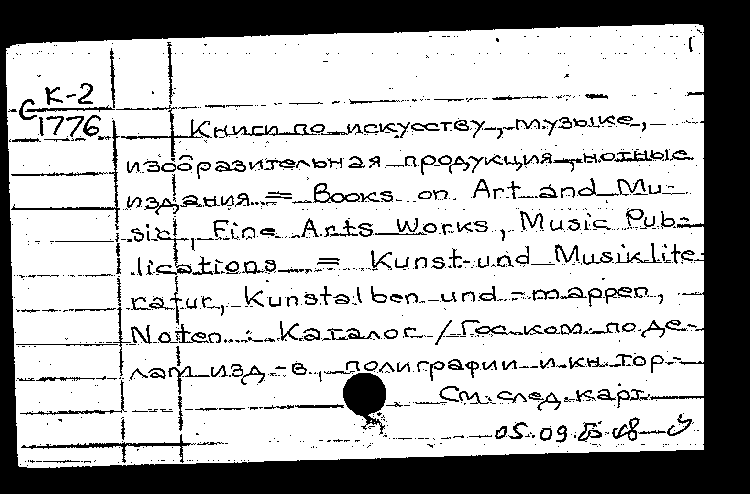 1
С К-2
1776
Книги по искусству, музыке,
изобразительная продукция, нотные
издания = Books on Art and Mu-
sic, Fine Arts Works, Music Pub-
lications = Kunst-und Musiklite-
ratur, Kunstalben und -mappen,
Noten : Каталог / Гос. ком. по де-
лам изд-в, полиграфии и кн. тор-
См. след. карт.
05.09